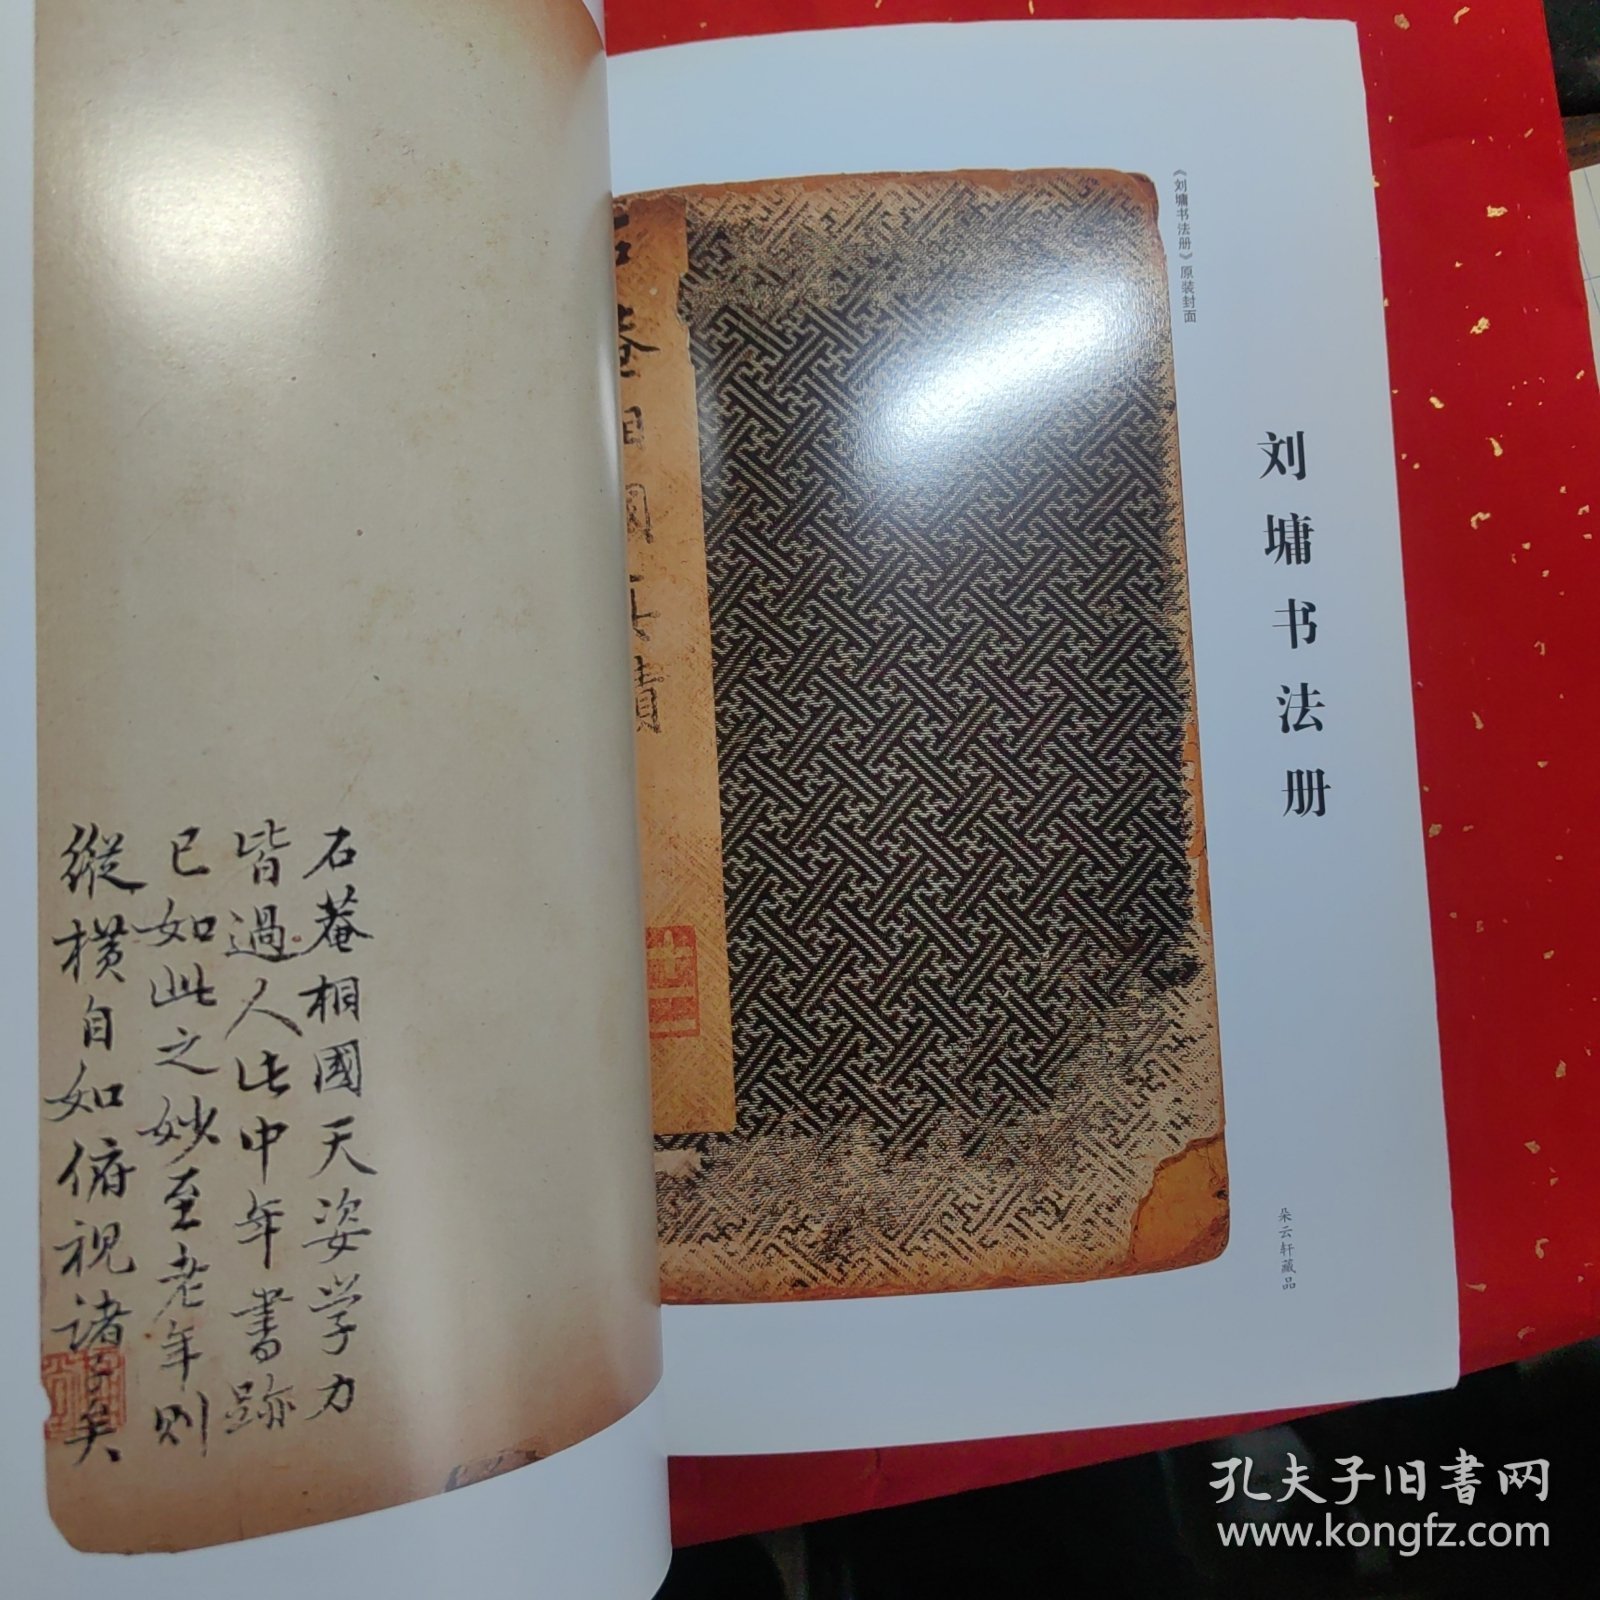 《刘墉书法册》原装封面
刘墉书法册
朵云轩藏品
石菴相國真蹟
石菴相國天姿学力
皆過人此中年書跡
已如此之妙至老年则
縱横自如俯視諸子矣
孔夫子旧书网
www.kongfz.com